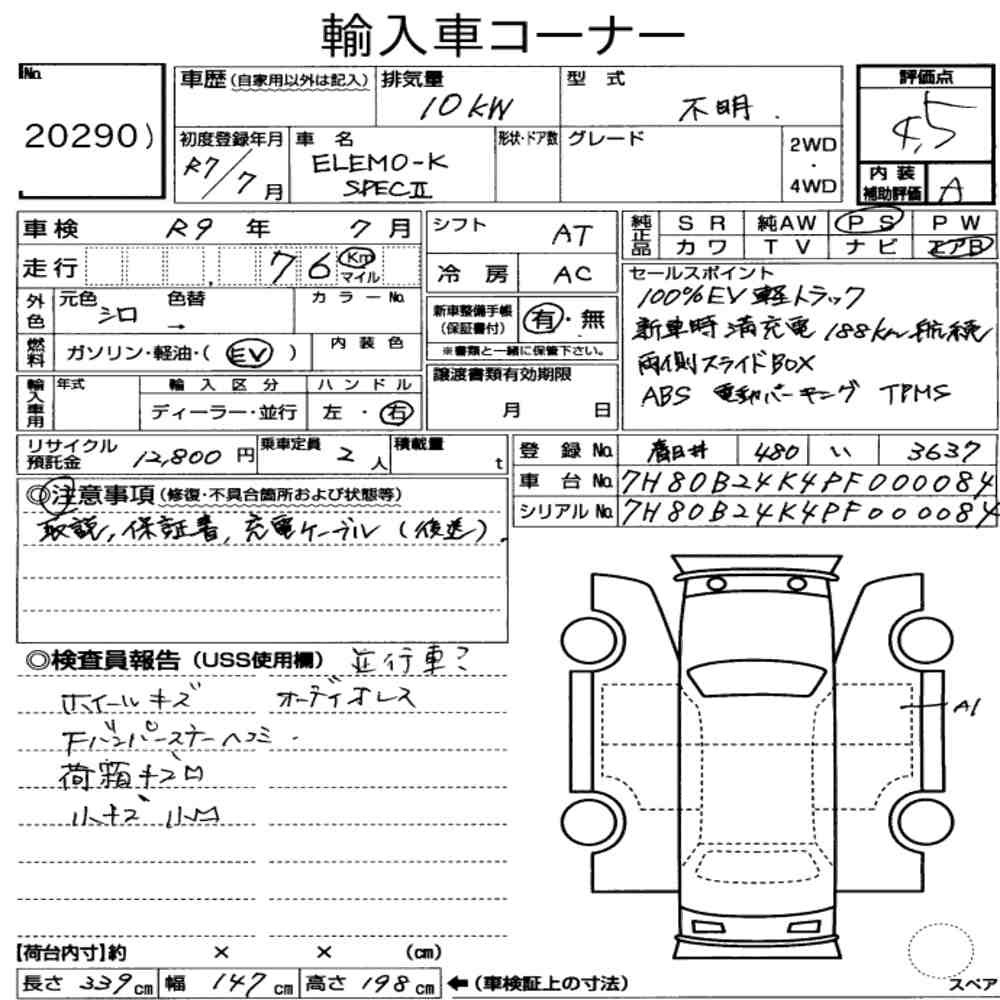 輸入車コーナー
No. 20290)
車歴 (自家用以外は記入) 排気量 10KW 型式 不明.
評価点 4.5
初度登録年月 R7/7月 車名 ELEMO-K SPECⅡ 形状・ドア数 グレード 2WD・4WD
内装補助評価 A
車検 R9年 7月
走行 , 76 Km マイル
シフト AT
冷房 AC
純正品 SR 純AW PS PW
カワ TV ナビ エアB
外色 元色 シロ 色替 → カラーNo.
燃料 ガソリン・軽油・(EV) 内装色
新車整備手帳(保証書付) 有・無
※書類と一緒に保管下さい。
輸入車用 年式 輸入区分 ハンドル
ディーラー・並行 左・右
譲渡書類有効期限
月 日
セールスポイント
100%EV 軽トラック
新車時満充電 188km航続
両側スライドBOX
ABS 電動パーキング TPMS
リサイクル預託金 12,800円 乗車定員 2人 積載量 t
登録No. 春日井 480 い 3637
車台No. 7H80B24K4PF000084
シリアルNo. 7H80B24K4PF000084
◎注意事項(修復・不具合箇所および状態等)
取説, 保証書, 充電ケーブル (後送).
◎検査員報告(USS使用欄) 並行車?
ホイールキズ オーディオレス
下バンパーステーヘコミ.
荷箱キズ凹
小キズ 小凹
A1
【荷台内寸】約 × × (cm)
長さ 339cm 幅 147cm 高さ 198cm ←(車検証上の寸法)
スペア